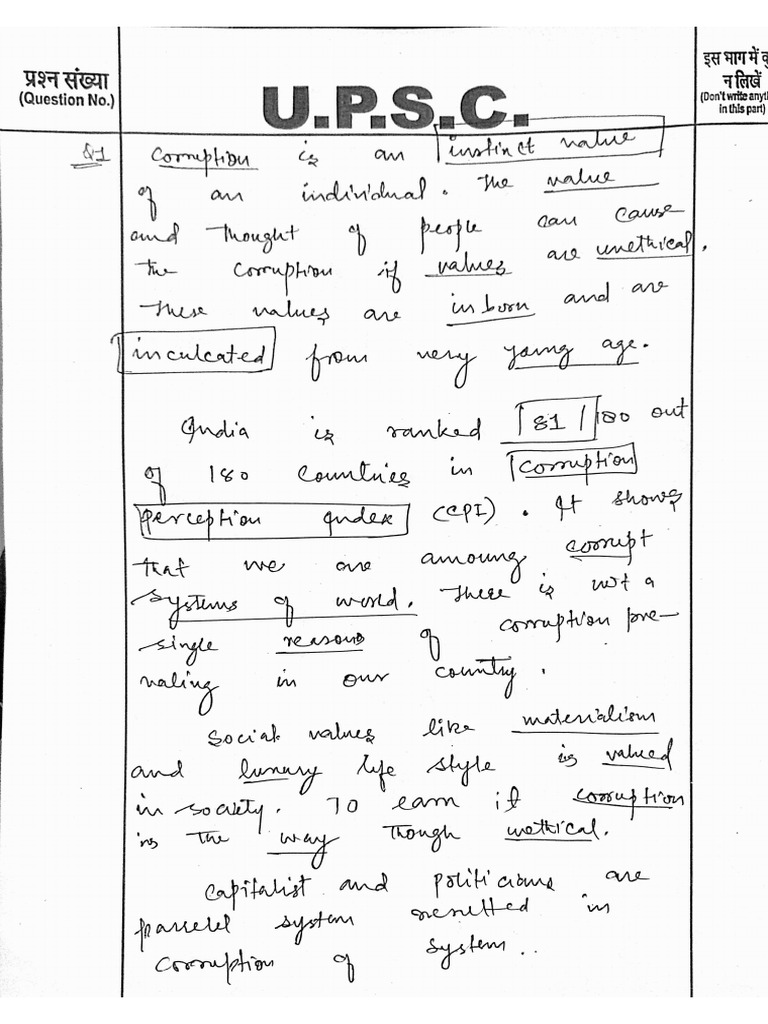 प्रश्न संख्या
(Question No.)
U.P.S.C.
इस भाग में कु
न लिखें
(Don't write anyth
in this part)
Q1 Corruption is an instinct value
of an individual. The value
and thought of people can cause
the corruption if values are unethical.
These values are in born and are
inculcated from very young age.
India is ranked 81/180 out
of 180 countries in corruption
perception Index (CPI). It shows
that we are amoung corrupt
systems of world. There is not a
single reasons of corruption pre-
valing in our country.
Social values like materialism
and luxury life style is valued
in society. To earn it corruption
is the way though unethical.
Capitalist and politicians are
parallel system resulted in
corruption of system..